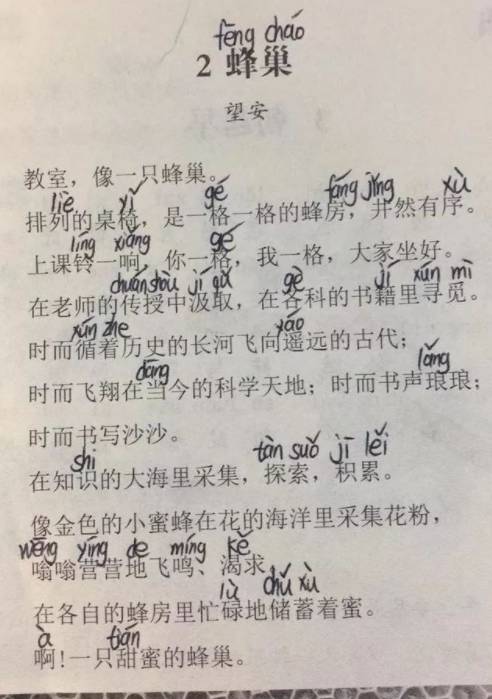 fēng cháo
2 蜂巢
望安
教室，像一只蜂巢。
liè yǐ gé fáng jǐng xù
排列的桌椅，是一格一格的蜂房，井然有序。
líng xiǎng gé
上课铃一响，你一格，我一格，大家坐好。
chuán shòu jí qǔ gè jí xún mì
在老师的传授中汲取，在各科的书籍里寻觅。
xún zhe yáo
时而循着历史的长河飞向遥远的古代；
dāng láng
时而飞翔在当今的科学天地；时而书声琅琅；
时而书写沙沙。
shi tàn suǒ jī lěi
在知识的大海里采集，探索，积累。
像金色的小蜜蜂在花的海洋里采集花粉，
wēng yíng de míng kě
嗡嗡营营地飞鸣、渴求，
lù chǔ xù
在各自的蜂房里忙碌地储蓄着蜜。
à tián
啊！一只甜蜜的蜂巢。